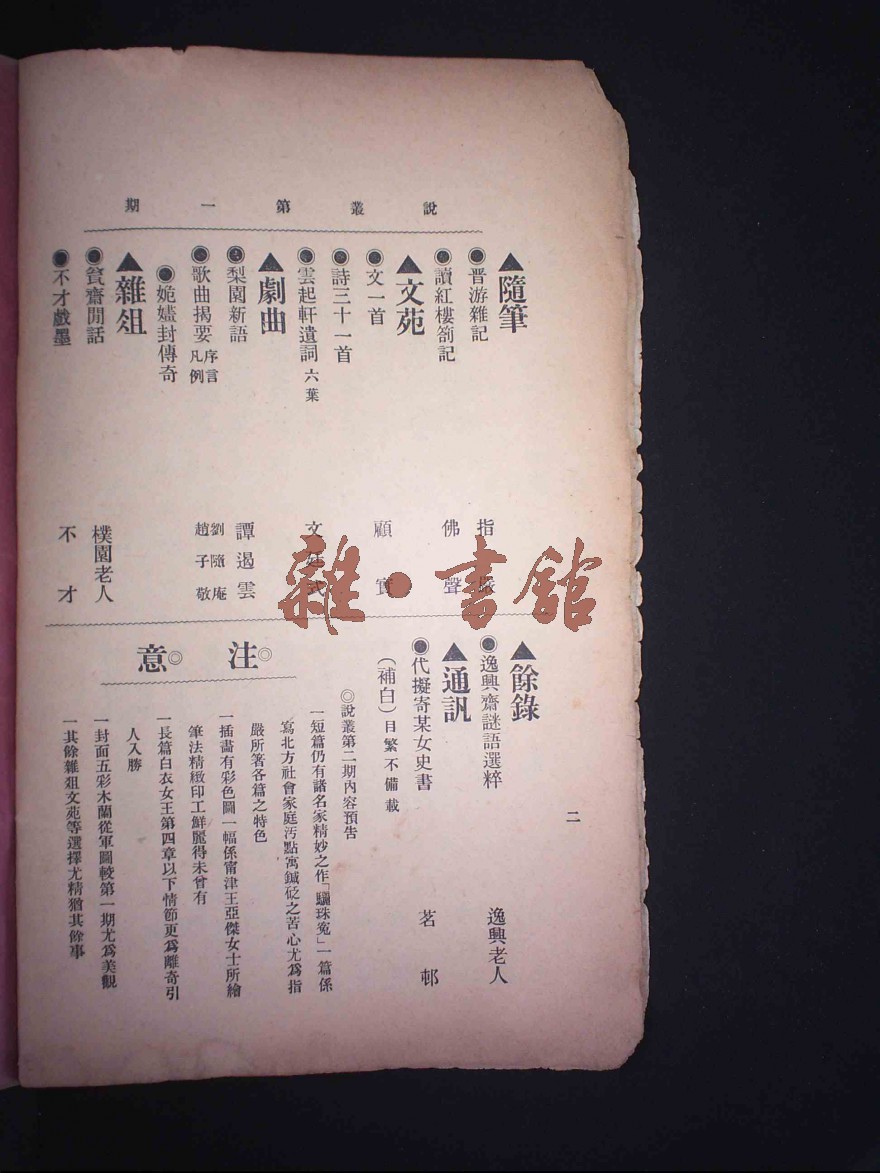 說叢第一期
▲隨筆
●晋游雜記 指嚴
●讀紅樓劄記 佛聲
▲文苑
●文一首 顧實
●詩三十一首
●雲起軒遺詞 六葉 文廷式
▲劇曲
●梨園新語 譚遏雲
●歌曲揭要 序言 凡例 劉隨庵 趙子敬
●姽嫿封傳奇
▲雜俎
●貧齋閒話 樸園老人
●不才戲墨 不才
▲餘錄
●逸興齋謎語選粹 逸興老人
▲通訊
●代擬寄某女史書 茗邨
(補白)目繁不備載
◎注◎意
◎說叢第二期內容預告
一短篇仍有諸名家精妙之作「驪珠寃」一篇係
寫北方社會家庭汚點寓鍼砭之苦心尤爲指
嚴所箸各篇之特色
一插畵有彩色圖一幅係甯津王亞傑女士所繪
筆法精緻印工鮮麗得未曾有
一長篇白衣女王第四章以下情節更爲離奇引
人入勝
一封面五彩木蘭從軍圖較第一期尤爲美觀
一其餘雜俎文苑等選擇尤精猶其餘事
二
雜·書館